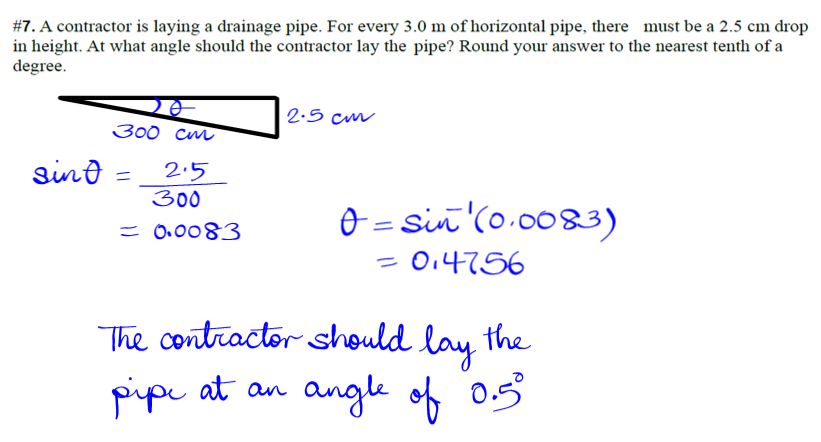 #7. A contractor is laying a drainage pipe. For every 3.0 m of horizontal pipe, there must be a 2.5 cm drop
in height. At what angle should the contractor lay the pipe? Round your answer to the nearest tenth of a
degree.
θ
2.5 cm
300 cm
sinθ = 2.5
300
= 0.0083
θ = sin⁻¹(0.0083)
= 0.4756
The contractor should lay the
pipe at an angle of 0.5°